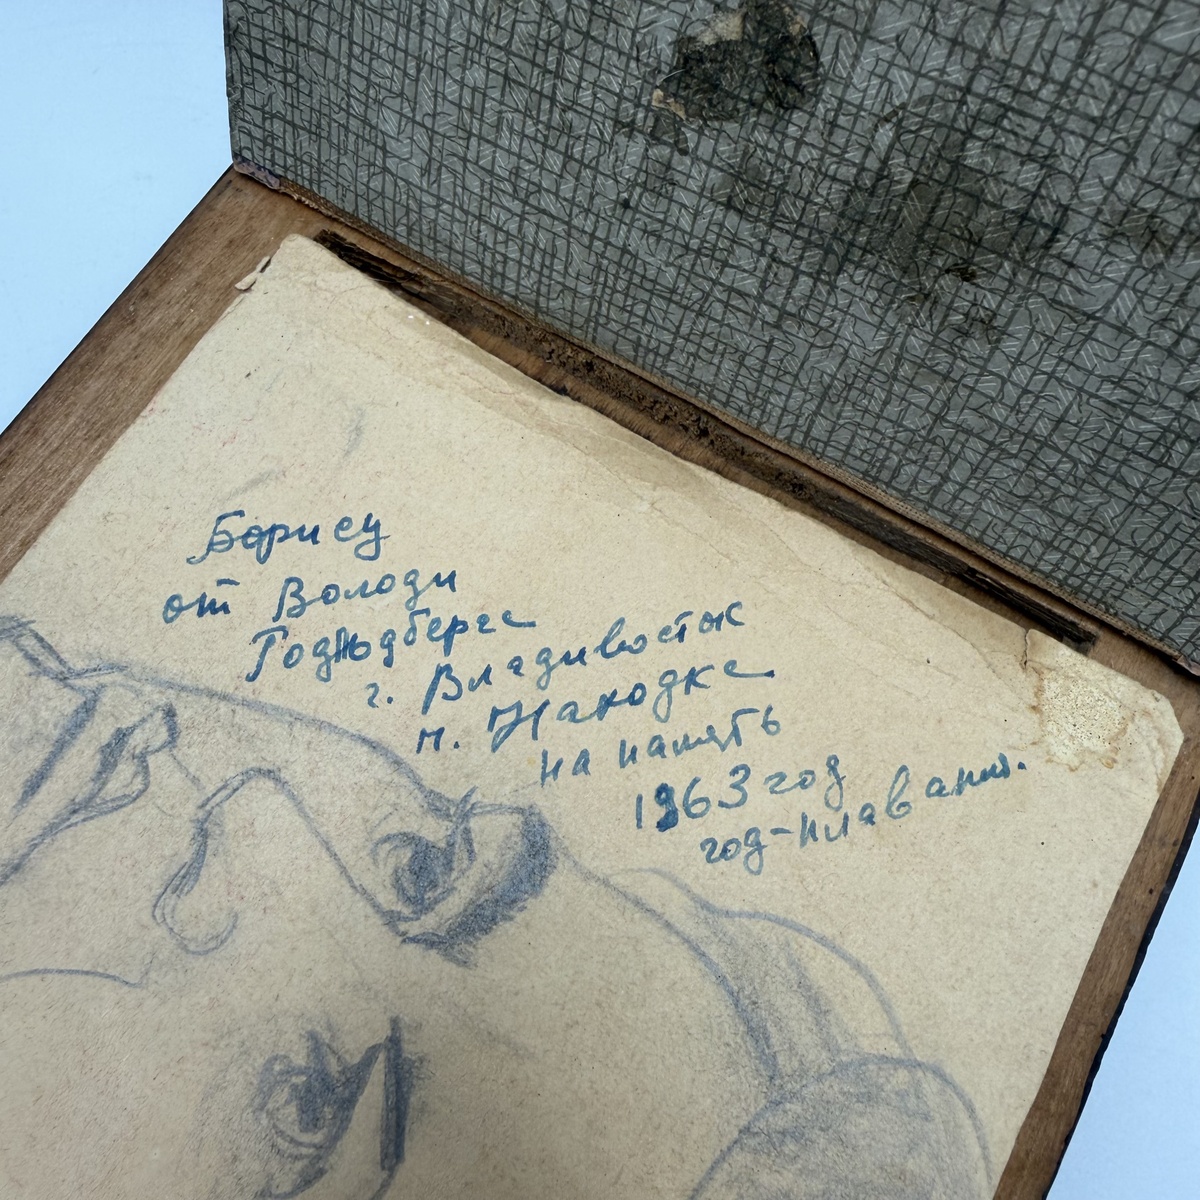 Борису
от Володи
г. Владивосток
п. Находка
на память
1963 год
год-плавания.